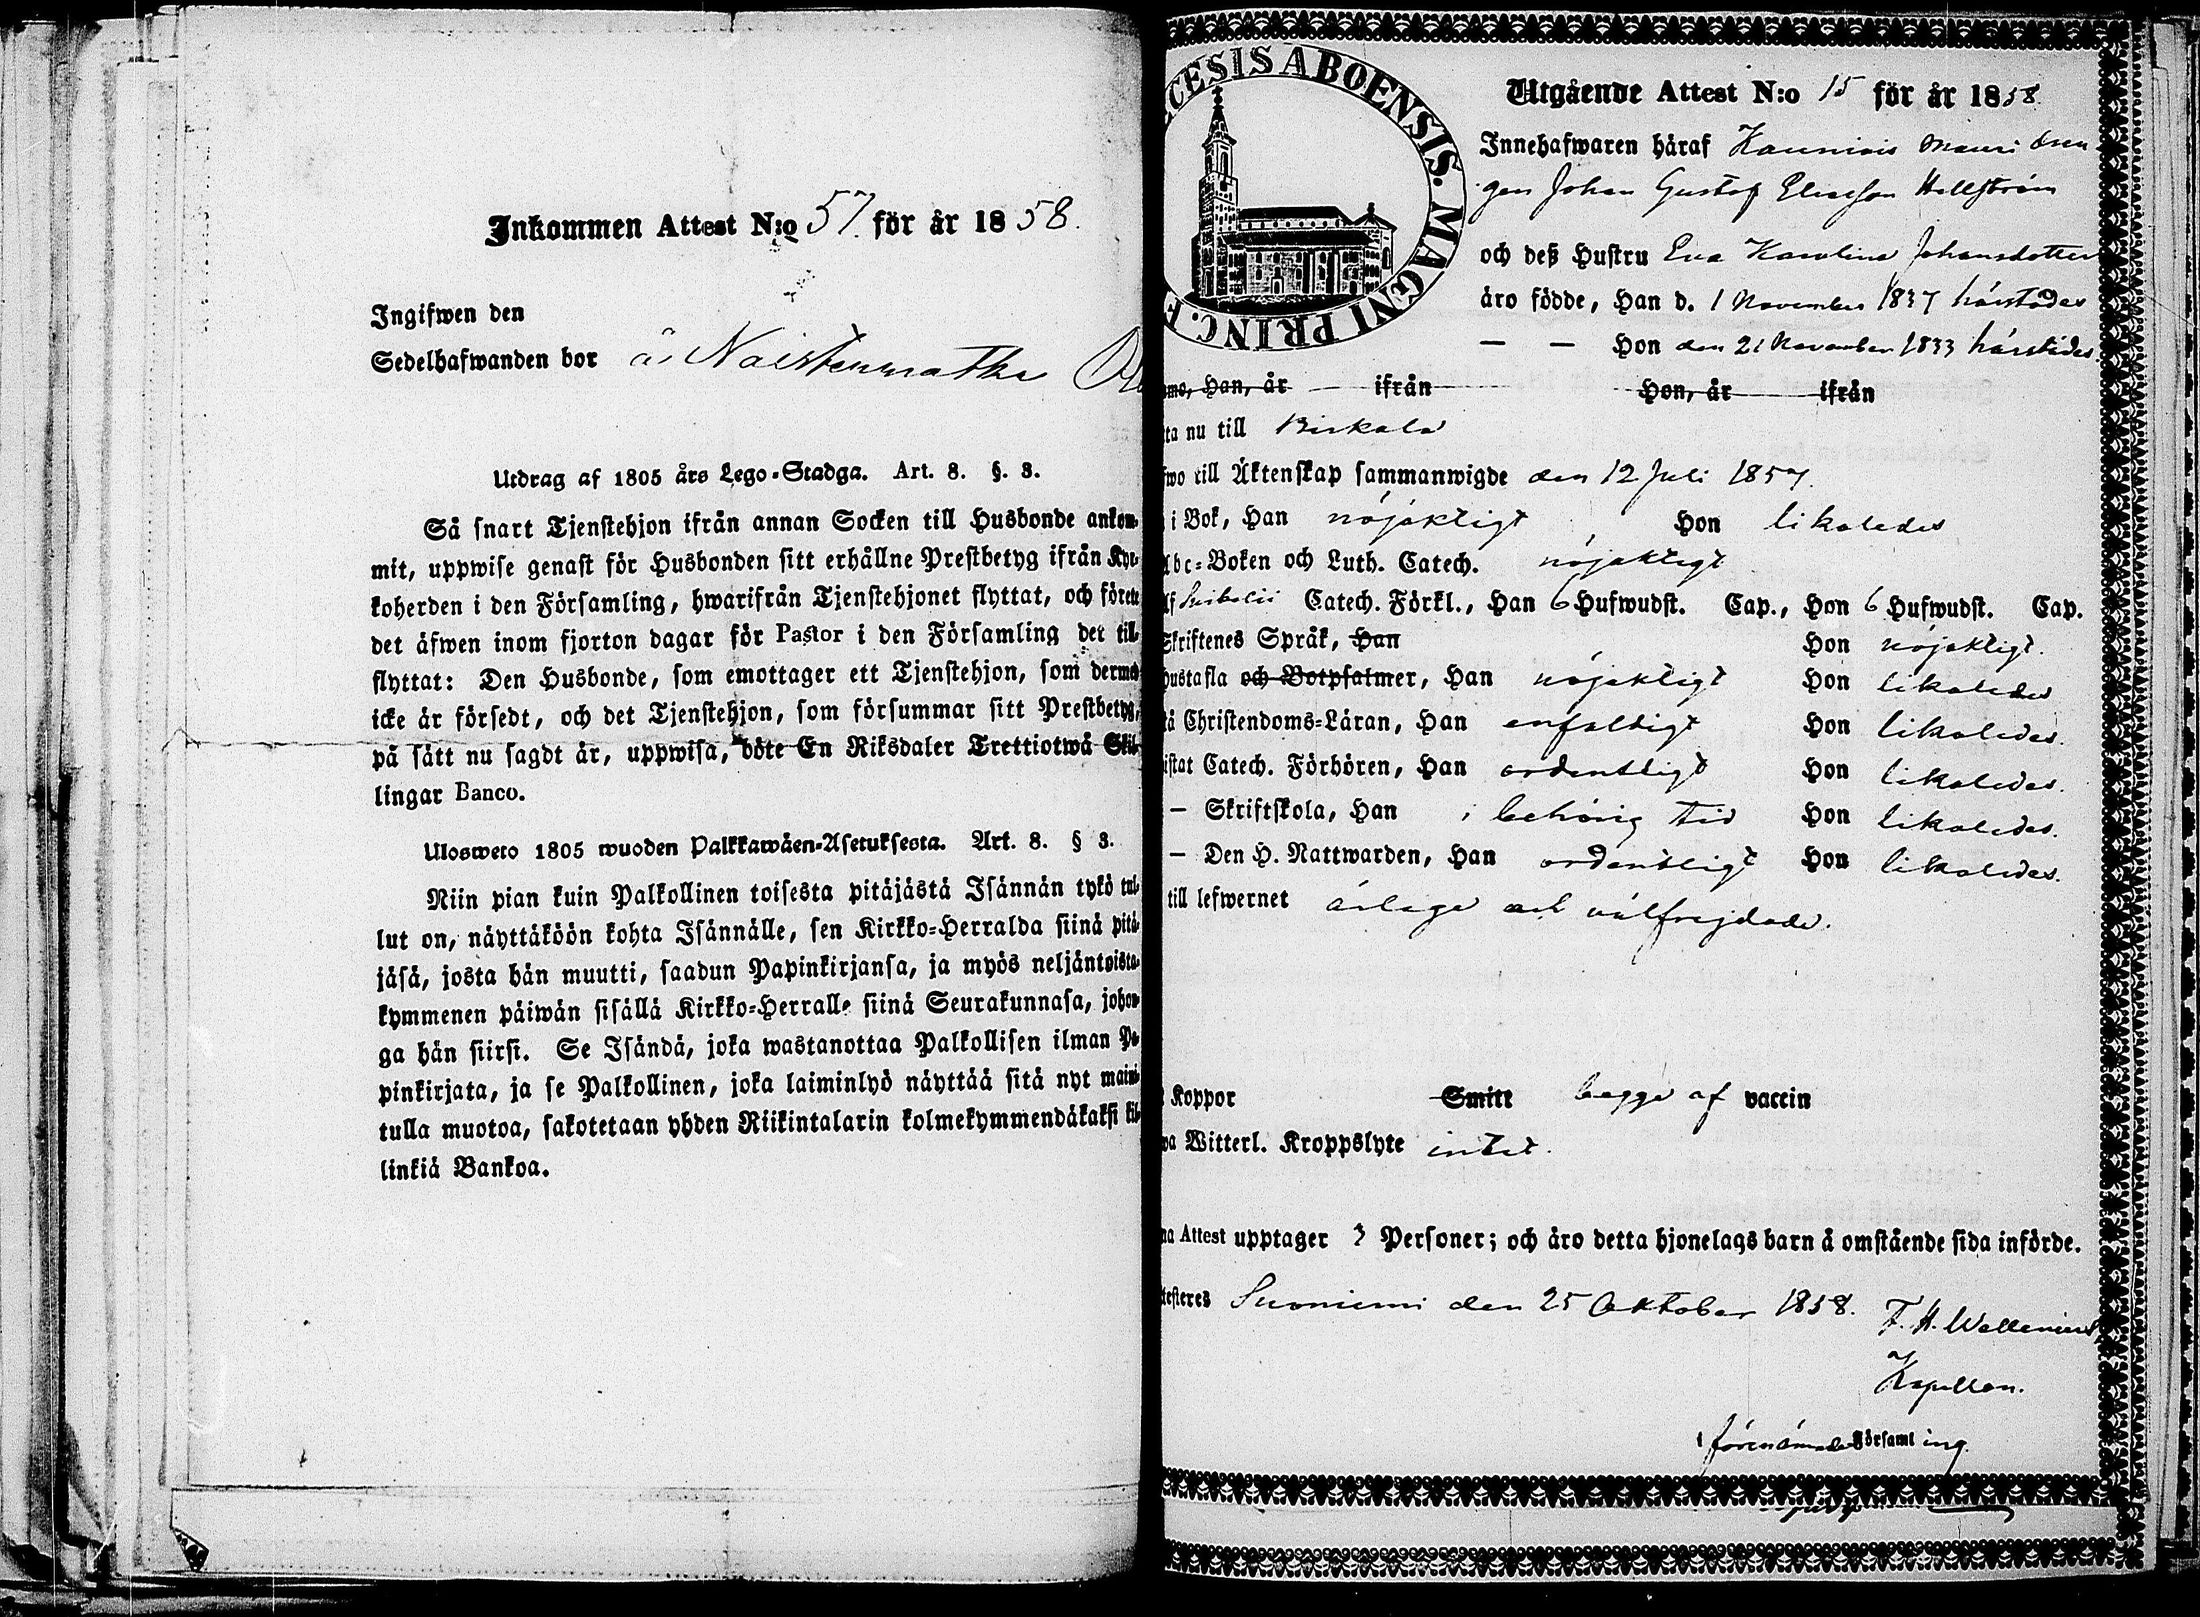 Inkommen Attest N:o 57 för år 1858.
Ingifwen den
Sedelhafwanden bor å Naistenmatka
Utdrag af 1805 års Lego-Stadga. Art. 8. §. 3.
Så snart Tjenstehjon ifrån annan Socken till Husbonde ankom-
mit, uppwise genast för Husbonden sitt erhållne Prestbetyg ifrån Kyr-
koherden i den Församling, hwarifrån Tjenstehjonet flyttat, och förete
det äfwen inom fjorton dagar för Pastor i den Församling det till-
flyttat: Den Husbonde, som emottager ett Tjenstehjon, som dermed
icke är försedt, och det Tjenstehjon, som försummar sitt Prestbetyg,
på sätt nu sagdt är, uppwisa, böte En Riksdaler Trettiotwå Skil-
lingar Banco.
Ulosweto 1805 wuoden Palkkawäen-Asetuksesta. Art. 8. § 3.
Niin pian kuin Palkollinen toisesta pitäjästä Isännän tykö tul-
lut on, näyttäköön kohta Isännälle, sen Kirkko-Herralda siinä pitä-
jäsä, josta hän muutti, saadun Papinkirjansa, ja myös neljäntoista-
kymmenen päiwän sisällä Kirkko-Herralle siinä Seurakunnasa, johon-
ga hän siirsi. Se Isändä, joka wastanottaa Palkollisen ilman Pa-
pinkirjata, ja se Palkollinen, joka laiminlyö näyttää sitä nyt maini-
tulla muotoa, sakotetaan yhden Riikintalarin kolmekymmendäkaksi kil-
linkiä Bankoa.
CESIS ABOENSIS. MAGNI PRINC. F
Utgående Attest N:o 15 för år 1858.
Innehafwaren häraf Kauniais Mauri dren
gen Johan Gustaf Eliasson Hellström
och deß Hustru Eva Karolina Johansdotter
äro födde, Han d. 1 November 1837 härstädes
— — Hon den 21 November 1833 härstädes.
ma, Han, år ifrån Hon, år ifrån
ta nu till Birkala
wo till Äktenskap sammanwigde den 12 Juli 1857.
i Bok, Han nöjaktigt Hon likaledes
Abc-Boken och Luth. Catech. nöjaktigt
lf Svebelii Catech. Förkl., Han 6 Hufwudst. Cap., Hon 6 Hufwudst. Cap.
Skriftenes Språk, Han Hon nöjaktigt.
Hustafla och Botpsalmer, Han nöjaktigt Hon likaledes
tå Christendoms-Läran, Han enfaldigt Hon likaledes.
istat Catech. Förhören, Han ordentligt Hon likaledes.
— Skriftskola, Han i behörig tid Hon likaledes.
— Den H. Nattwarden, Han ordentligt Hon likaledes.
till lefwernet ärliga och välfrejdade.
Koppor Smitt begge af vaccin
wa Witterl. Kroppslyte intet.
na Attest upptager 3 Personer; och äro detta hjonelags barn å omstående sida införde.
testeres Suoniemi den 25 Oktober 1858.
F. H. Wallenius
Kapellan.
i förenämnde Församling.